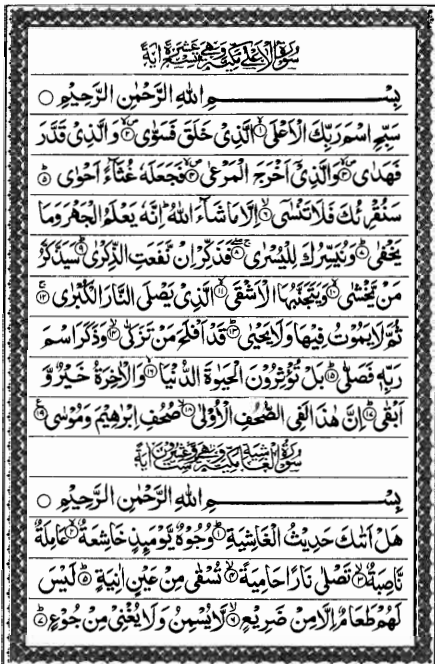 سُوْرَةُ الْاَعْلٰى مَكِّيَّةٌ وَّهِيَ تِسْعَ عَشْرَةَ اٰيَةً
بِسْمِ اللّٰهِ الرَّحْمٰنِ الرَّحِيْمِ ○
سَبِّحِ اسْمَ رَبِّكَ الْاَعْلَى ۙ﴿۱﴾ الَّذِيْ خَلَقَ فَسَوّٰى ۙ﴿۲﴾ وَالَّذِيْ قَدَّرَ
فَهَدٰى ۙ﴿۳﴾ وَالَّذِيْٓ اَخْرَجَ الْمَرْعٰى ۙ﴿۴﴾ فَجَعَلَهٗ غُثَآءً اَحْوٰى ؕ﴿۵﴾
سَنُقْرِئُكَ فَلَا تَنْسٰٓى ۙ﴿۶﴾ اِلَّا مَا شَآءَ اللّٰهُ ؕ اِنَّهٗ يَعْلَمُ الْجَهْرَ وَمَا
يَخْفٰى ؕ﴿۷﴾ وَنُيَسِّرُكَ لِلْيُسْرٰى ۚ﴿۸﴾ فَذَكِّرْ اِنْ نَّفَعَتِ الذِّكْرٰى ؕ﴿۹﴾ سَيَذَّكَّرُ
مَنْ يَّخْشٰى ۙ﴿۱۰﴾ وَيَتَجَنَّبُهَا الْاَشْقَى ۙ﴿۱۱﴾ الَّذِيْ يَصْلَى النَّارَ الْكُبْرٰى ۚ﴿۱۲﴾
ثُمَّ لَا يَمُوْتُ فِيْهَا وَلَا يَحْيٰى ؕ﴿۱۳﴾ قَدْ اَفْلَحَ مَنْ تَزَكّٰى ۙ﴿۱۴﴾ وَذَكَرَ اسْمَ
رَبِّهٖ فَصَلّٰى ؕ﴿۱۵﴾ بَلْ تُؤْثِرُوْنَ الْحَيٰوةَ الدُّنْيَا ۖ﴿۱۶﴾ وَالْاٰخِرَةُ خَيْرٌ وَّ
اَبْقٰى ؕ﴿۱۷﴾ اِنَّ هٰذَا لَفِي الصُّحُفِ الْاُوْلٰى ۙ﴿۱۸﴾ صُحُفِ اِبْرٰهِيْمَ وَمُوْسٰى ۠﴿۱۹﴾
سُوْرَةُ الْغَاشِيَةِ مَكِّيَّةٌ وَّهِيَ سِتٌّ وَّعِشْرُوْنَ اٰيَةً
بِسْمِ اللّٰهِ الرَّحْمٰنِ الرَّحِيْمِ ○
هَلْ اَتٰىكَ حَدِيْثُ الْغَاشِيَةِ ؕ﴿۱﴾ وُجُوْهٌ يَّوْمَئِذٍ خَاشِعَةٌ ۙ﴿۲﴾ عَامِلَةٌ
نَّاصِبَةٌ ۙ﴿۳﴾ تَصْلٰى نَارًا حَامِيَةً ۙ﴿۴﴾ تُسْقٰى مِنْ عَيْنٍ اٰنِيَةٍ ؕ﴿۵﴾ لَيْسَ
لَهُمْ طَعَامٌ اِلَّا مِنْ ضَرِيْعٍ ۙ﴿۶﴾ لَّا يُسْمِنُ وَلَا يُغْنِيْ مِنْ جُوْعٍ ؕ﴿۷﴾